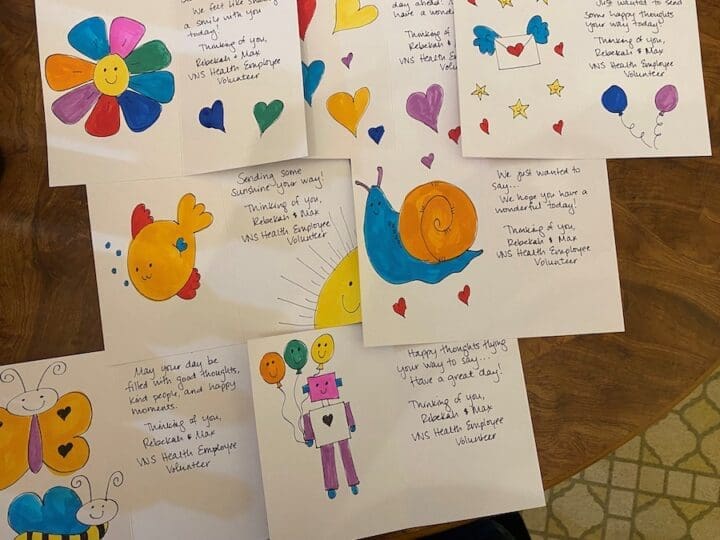 We felt like sharing
a smile with you
today!
Thinking of you,
Rebekah & Max
VNS Health Employee
Volunteer
day ahead!
have a wonde
Thinking of
Rebekah &
VNS Health
Volun
Just wanted to send
some happy thoughts
your way today!
Thinking of you,
Rebekah & Max
VNS Health Employee
Volunteer
Sending some
sunshine your way!
Thinking of you,
Rebekah & Max
VNS Health Employee
Volunteer
We just wanted to
say...
We hope you have a
wonderful today!
Thinking of you,
Rebekah & Max
VNS Health Employee
Volunteer
May your day be
filled with good thoughts,
kind people, and happy
moments.
Thinking of you,
Rebekah & Max
VNS Health Employee
Volunteer
Happy thoughts flying
your way to say...
Have a great day!
Thinking of you,
Rebekah & Max
VNS Health Employee
Volunteer